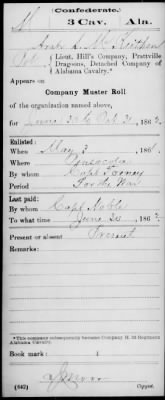 Confederate.
3 Cav. Ala.
Pvt, Lieut. Hill's Company, Prattville
Dragoons, Detached Company of
Alabama Cavalry.*
Appears on
Company Muster Roll
of the organization named above,
for June 30 to Oct 31, 186
Enlisted:
When May 3, 186
Where Pensacola
By whom Capt
Period For the War
Last paid:
By whom Capt Noble
To what time June 30, 186
Present or absent Present
Remarks:
*This company subsequently became Company H, 3d Regiment
Alabama Cavalry.
Book mark:
(642) Copyist.